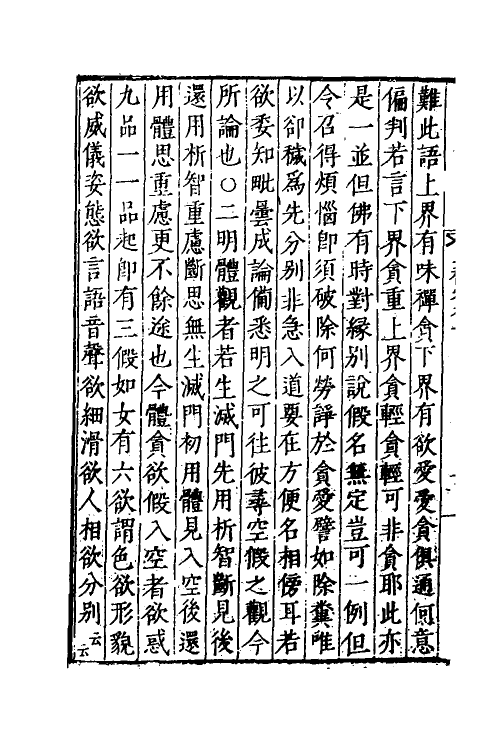 難此語上界有味禪貪下界有欲愛愛貪俱通何意
偏判若言下界貪重上界貪輕貪輕可非貪耶此亦
是一並但佛有時對緣別說假名無定豈可一例但
令召得煩惱即須破除何勞諍於貪愛譬如除糞唯
以卻穢為先分別非急入道要在方便名相傍耳若
欲委知毗曇成論備悉明之可往彼尋空假之觀今
所論也○二明體觀者若生滅門先用析智斷見後
還用析智重慮斷思無生滅門初用體見入空後還
用體思重慮更不餘途也今體貪欲假入空者欲惑
九品一一品起即有三假如女有六欲謂色欲形貌
欲威儀姿態欲言語音聲欲細滑欲人相欲分別云云